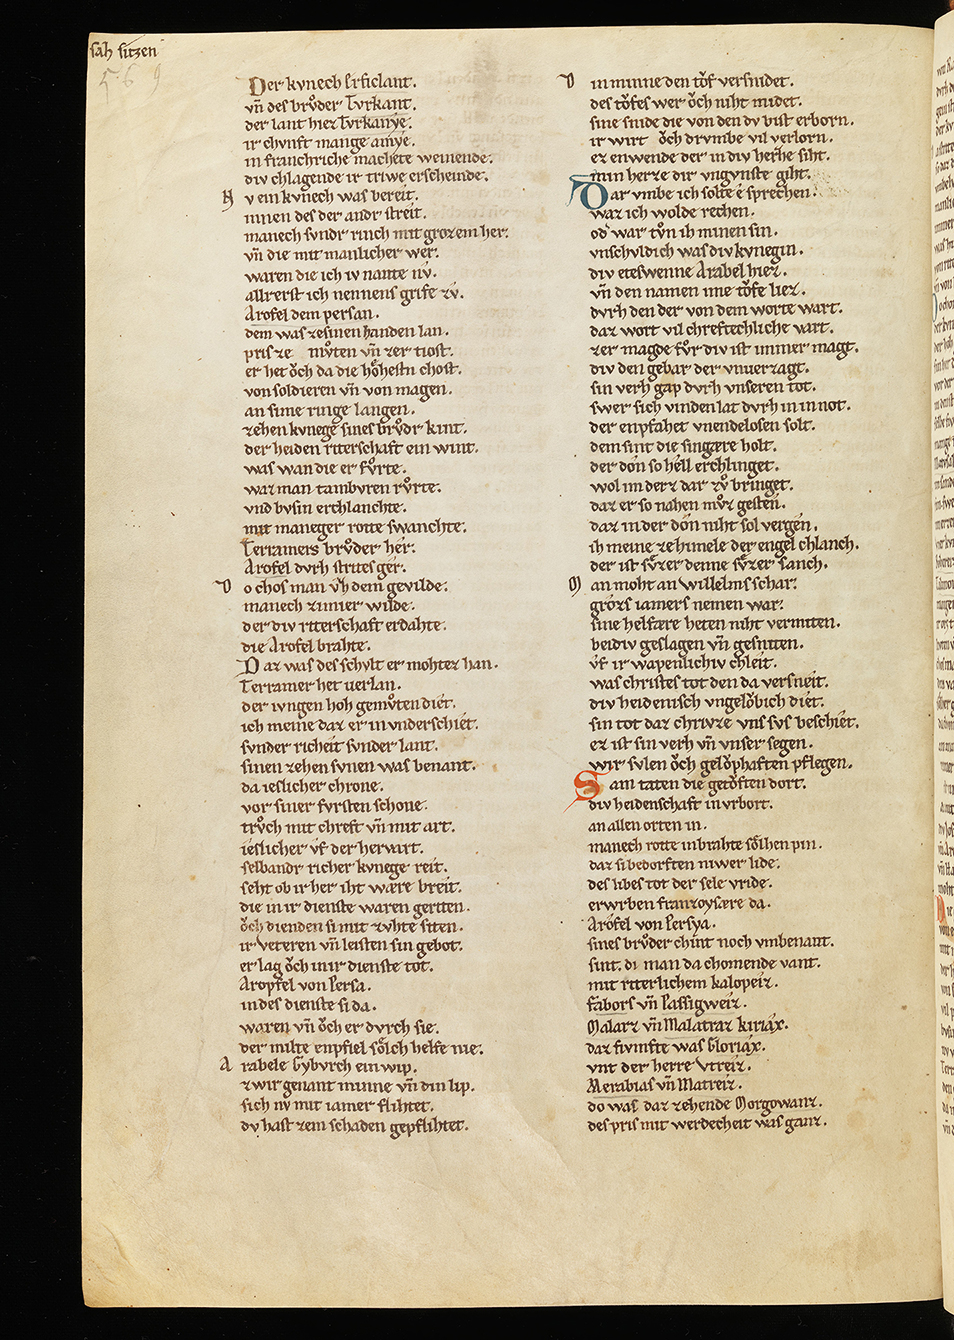 sah sitzen
569
Der kvnech Erficlant.
vn̄ des brůder Tvrkant.
der lant hiez Tvrkanẏe.
ir chvnft mange amẏe.
in franchriche machete weinende.
div chlagende ir triwe erscheinde.
N v ein kvnech was bereit.
innen des der andr streit.
manech svndr rinch mit grozem her.
vn̄ die mit manlicher wer.
waren die ich iv nante nv́.
allrerst ich nennens grife zv́.
Arofel dem persan.
dem was zesinen handen lan.
pris ze můten vn̄ zer tiost.
er het ôch da die hôhestn chost.
von soldieren vn̄ von magen.
an sime ringe langen.
zehen kvnege sines brůdr kint.
der heiden rterschaft ein wint.
was wan die er fůrte.
waz man tambvren růrte.
vnd bvsin erchlanchte.
mit maneger rotte swanchte.
Terramers brůder hér.
Arofel dvrh strites gér.
D o chos man v̂f dem gevilde.
manech zimier wilde.
der div rterschaft erdahte.
die Arofel brahte.
Daz was des schvlt er mohtez han.
Terramer het verlan.
der ivngen hoh gemůten diét.
ich meine daz er in vnderschiét.
svnder richeit svnder lant.
sinen zehen svnen was benant.
da ieslicher chrone.
vor siner fvrsten schone.
trv̊ch mit chreft vn̄ mit art.
ieslicher v̂f der hervart.
selbandr richer kvnege reit.
seht ob ir her iht wære breit.
die in ir dienste waren geriten.
ôch dienden si mit zvhte siten.
ir veteren vn̄ leisten sin gebot.
er lag ôch in ir dienste tot.
Aropfel von Persa.
in des dienste si da.
waren vn̄ ôch er dvrch sie.
der milte enpfiel sôlch helfe nie.
A rabele Gẏbvrch ein wip.
zwir genant minne vn̄ din lip.
sich nv mit iamer flihtet.
dv hast zem schaden gepflihtet.
D in minne den tôf versnidet.
des tôfes wer ôch niht midet.
sine snide die von den dv bist erborn.
ir wirt ôch drvmbe vil verlorn.
ez enwende der in div herhe siht.
min herze dir vngvnste giht.
Dar vmbe ich solte é sprechen.
waz ich wolde rechen.
od war tv̊n ih minen sin.
vnschvldich was div kvnegin.
div eteswenne Arabel hiez.
vn̄ den namen ime tôfe liez.
dvrh den der von dem worte wart.
daz wort vil chreftechliche vart.
zer magde fůr div ist immer magt.
div den gebar der vnverzagt.
sin verh gap dvrh vnseren tot.
swer sich vinden lat dvrh in in not.
der enpfahet vnendelosen solt.
dem sint die singære holt.
der dón so héll erchlinget.
wol im derz dar zů bringet.
daz er so nahen můz gestén.
daz in der dón niht sol vergén.
ih meine zehimele der engel chlanch.
der ist sv̊zer denne sv̊zer sanch.
M an moht an Willelms schar.
grózs iamers nemen war.
sine helfære heten niht vermiten.
beidiv geslagen vn̄ gesniten.
v̂f ir wapenlichiv chleit.
was christes tot den da versneit.
div heidenisch vngelôbich diét.
sin tot daz chrivze vns svs beschiét.
ez ist sin verh vn̄ vnser segen.
wir svlen ôch gelôphaften pflegen.
Sam taten die getôften dort.
div heidenschaft in vrbort.
an allen orten in.
manech rotte in brahte sôlhen pin.
daz si bedorften niwer lide.
des libes tot der sele vride.
erwrben franzoysære da.
Arófel von Persya.
sines brůder chint noch vmbenant.
sint. di man da chomende vant.
mit rterlichem kalopeiz.
fábors vn̄ Passigweiz.
Malarz vn̄ Malatraz kiriáx.
daz fivnfte was Gloriáx.
vnt der herre Vtreiz.
Merabias vn̄ Matreiz.
do was daz zehende Morgowanz.
des pris mit werdecheit was ganz.